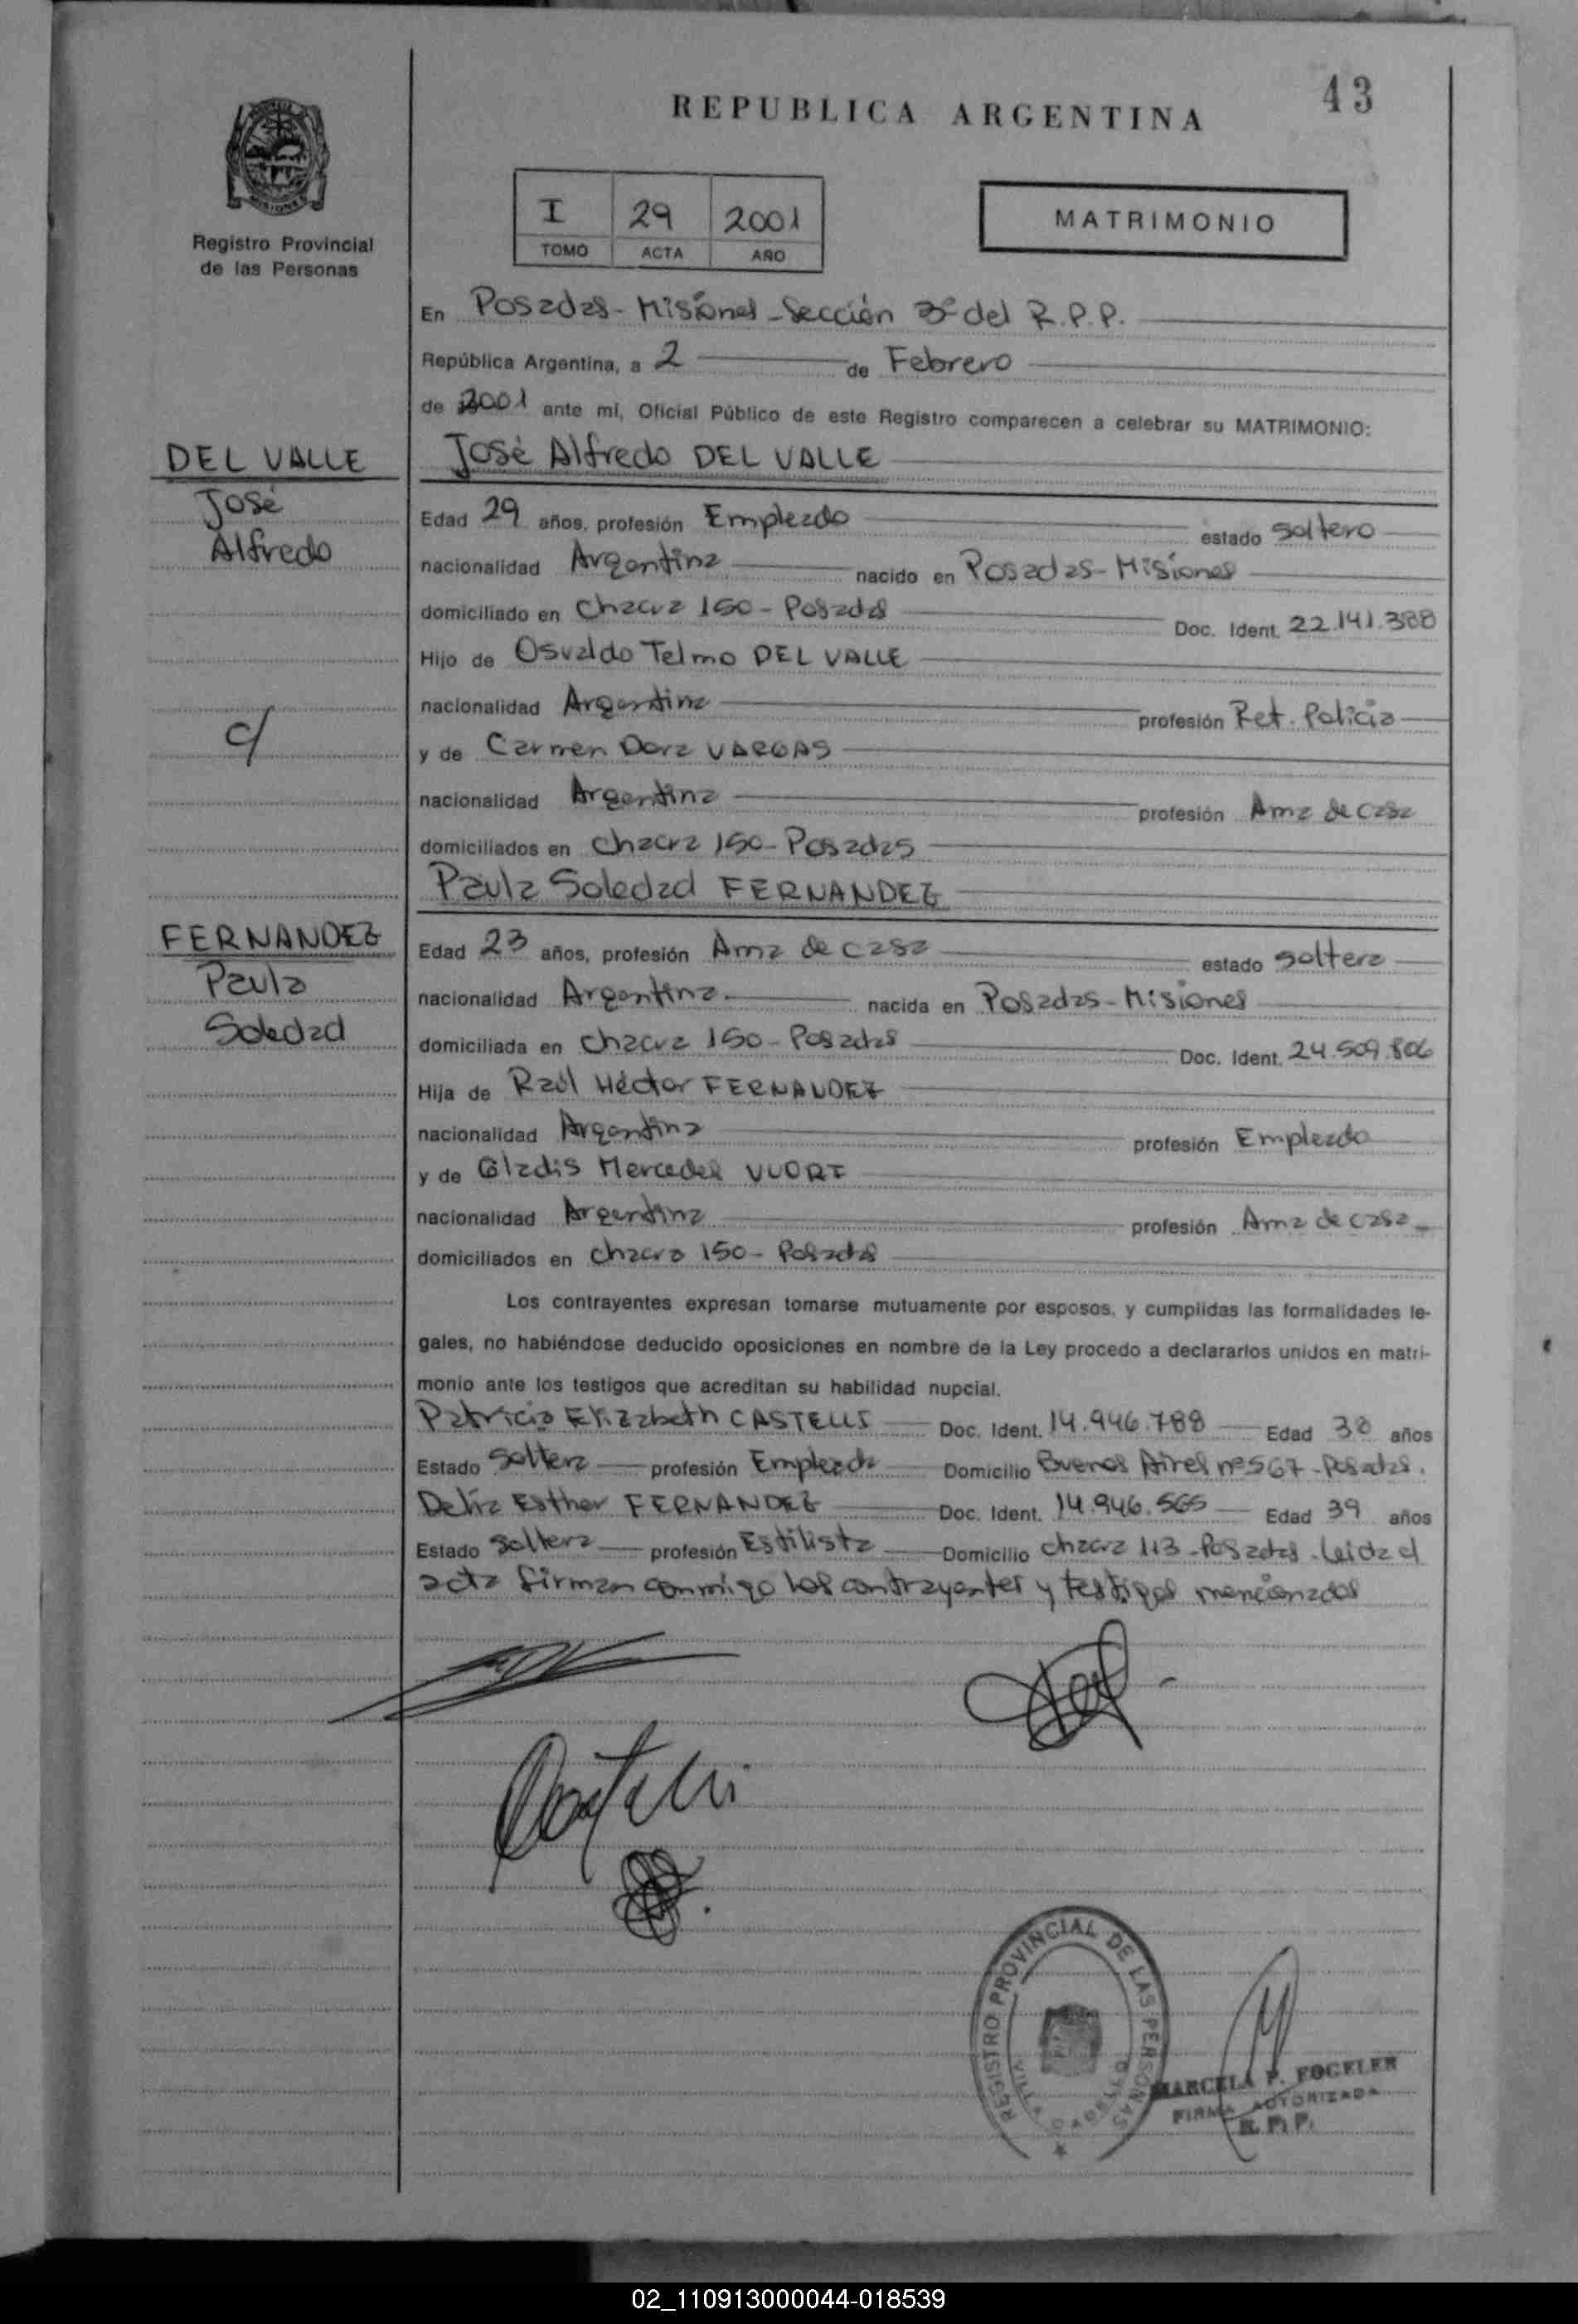 43
REPUBLICA ARGENTINA
Registro Provincial
de las Personas
I 29 2001
TOMO ACTA AÑO
MATRIMONIO
En Posadas - Misiones - Sección 3º del R.P.P.
República Argentina, a 2 de Febrero
de 2001 ante mí, Oficial Público de este Registro comparecen a celebrar su MATRIMONIO:
DEL VALLE
José
Alfredo
c/
FERNANDEZ
Paula
Soledad
José Alfredo DEL VALLE
Edad 29 años, profesión Empleado estado soltero
nacionalidad Argentina nacido en Posadas - Misiones
domiciliado en Chacra 150 - Posadas Doc. Ident. 22.141.388
Hijo de Osvaldo Telmo DEL VALLE
nacionalidad Argentina profesión Ret. Policia
y de Carmen Dora VARGAS
nacionalidad Argentina profesión Ama de casa
domiciliados en Chacra 150 - Posadas
Paula Soledad FERNANDEZ
Edad 23 años, profesión Ama de casa estado soltera
nacionalidad Argentina nacida en Posadas - Misiones
domiciliada en Chacra 150 - Posadas Doc. Ident. 24.509.806
Hija de Raúl Héctor FERNANDEZ
nacionalidad Argentina profesión Empleado
y de Gladis Mercedes
nacionalidad Argentina profesión Ama de casa
domiciliados en Chacra 150 - Posadas
Los contrayentes expresan tomarse mutuamente por esposos, y cumplidas las formalidades le-
gales, no habiéndose deducido oposiciones en nombre de la Ley procedo a declararlos unidos en matri-
monio ante los testigos que acreditan su habilidad nupcial.
Patricia Elizabeth CASTELLI Doc. Ident. 14.946.788 Edad 38 años
Estado soltera profesión Empleada Domicilio Buenos Aires nº 567 - Posadas.
Delia Esther FERNANDEZ Doc. Ident. 14.946.565 Edad 39 años
Estado soltera profesión Estilista Domicilio Chacra 113 - Posadas. Leida el
acta firman conmigo los contrayentes y testigos mencionados
REGISTRO PROVINCIAL DE LAS PERSONAS
MARCELA P. FOGELER
FIRMA AUTORIZADA
R. P. P.
02_110913000044-018539